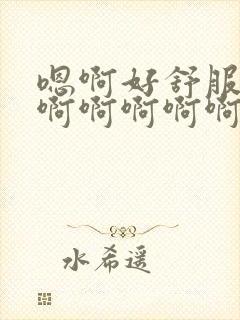 嗯啊好舒服
啊啊啊啊啊
水希遥